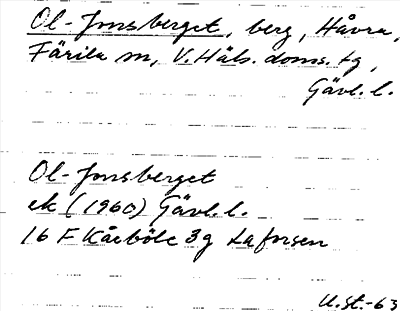 Ol-Jonsberget, berg, Håvra,
Färila sn, V. Häls. doms. tg,
Gävl. l.
Ol-Jonsberget
ek (1960) Gävl. l.
16 F Kårböle 3g Laforsen
U.st.-63